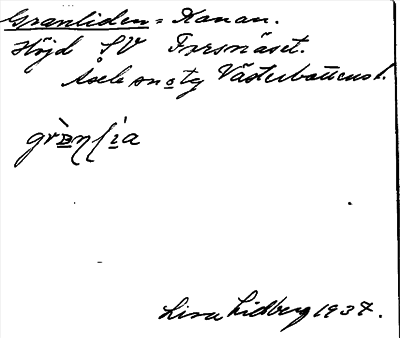 Granliden = Kanan.
Höjd SV Torsnäset.
Åsele sn o tg Västerbottens l.
Lisa Lidberg 1934.